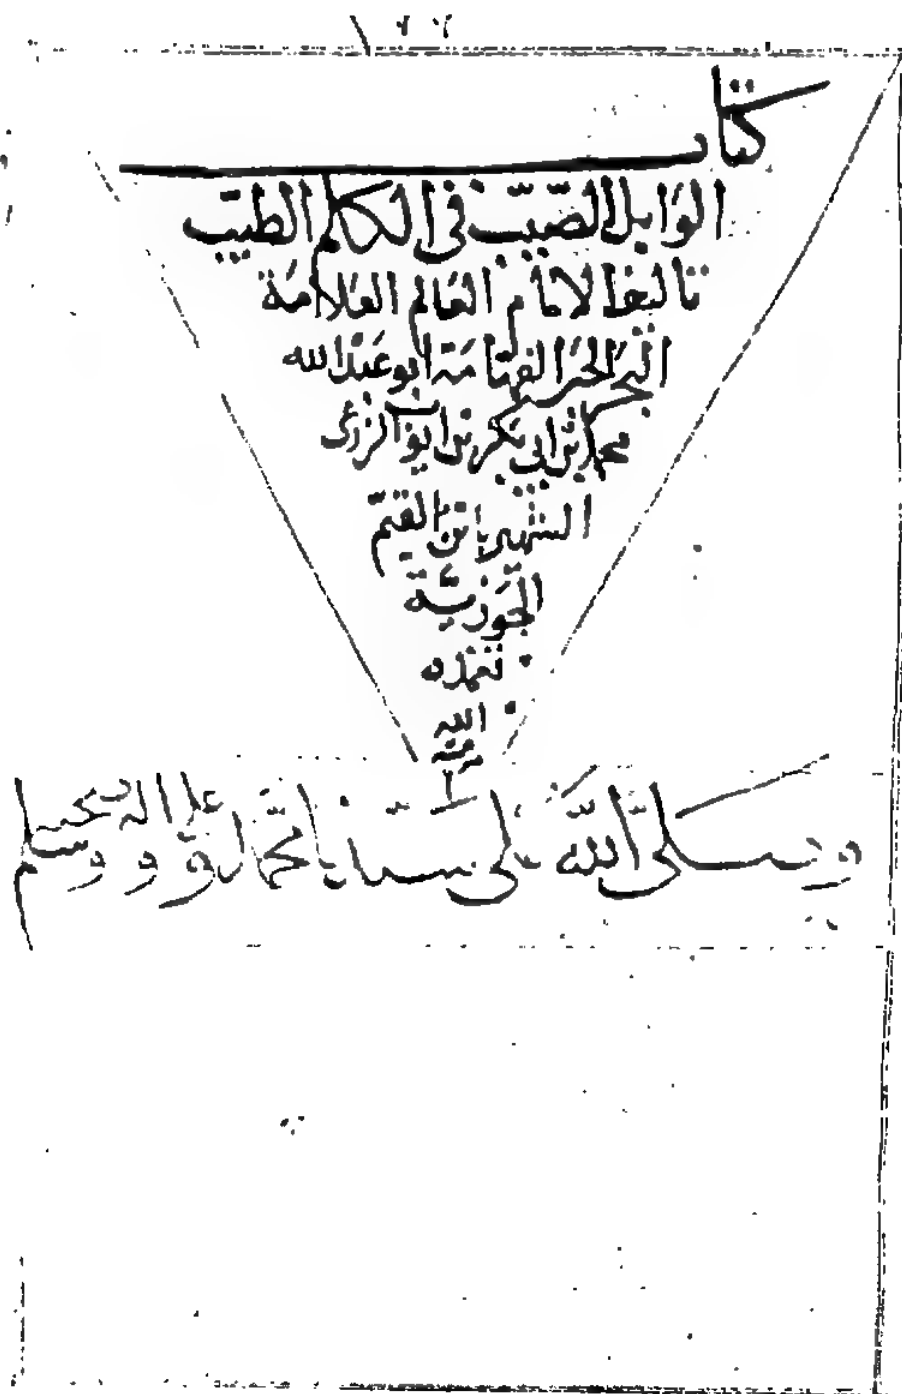 كتاب
الوابل الصيب في الكلم الطيب
تاليف الامام العالم العلامة
البحر الحبر الفهامة ابو عبد الله
محمد ابن ابي بكر بن ايوب الزرعي
الشهير بابن القيم
الجوزية
تغمده
الله
برحمته
وصلى الله على سيدنا محمد وعلى اله وصحبه وسلم